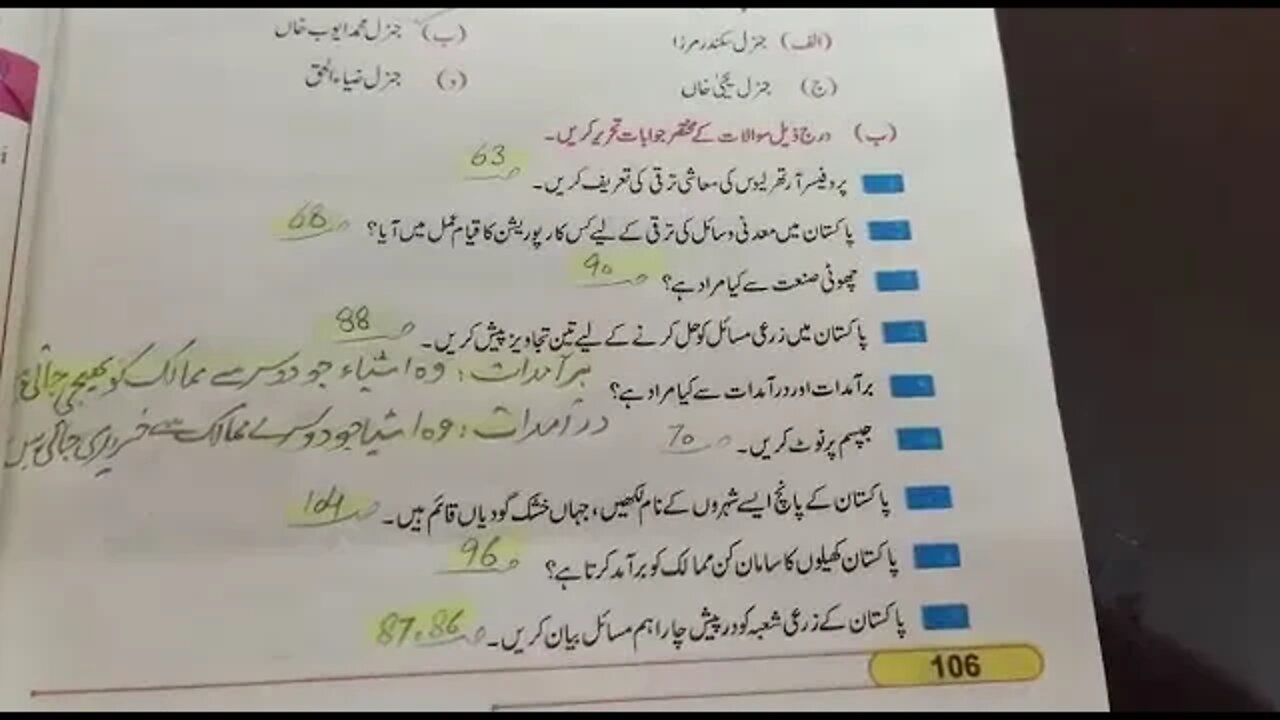 (الف) جنرل سکندر مرزا (ب) جنرل محمد ایوب خاں
(ج) جنرل یحییٰ خاں (د) جنرل ضیاء الحق
(ب) درج ذیل سوالات کے مختصر جوابات تحریر کریں۔
پروفیسر آرتھر لیوس کی معاشی ترقی کی تعریف کریں۔ ص 63
پاکستان میں معدنی وسائل کی ترقی کے لیے کس کارپوریشن کا قیام عمل میں آیا؟ ص 68
چھوٹی صنعت سے کیا مراد ہے؟ ص 90
پاکستان میں زرعی مسائل کو حل کرنے کے لیے تین تجاویز پیش کریں۔ ص 88
برآمدات اور درآمدات سے کیا مراد ہے؟
برآمدات: وہ اشیاء جو دوسرے ممالک کو بھیجی جاتی
درآمدات: وہ اشیا جو دوسرے ممالک سے خریدی جاتی ہیں
جپسم پر نوٹ کریں۔ ص 70
پاکستان کے پانچ ایسے شہروں کے نام لکھیں، جہاں خشک گودیاں قائم ہیں۔ ص 104
پاکستان کھیلوں کا سامان کن ممالک کو برآمد کرتا ہے؟ ص 96
پاکستان کے زرعی شعبہ کو درپیش چار اہم مسائل بیان کریں۔ ص 86، 87
106